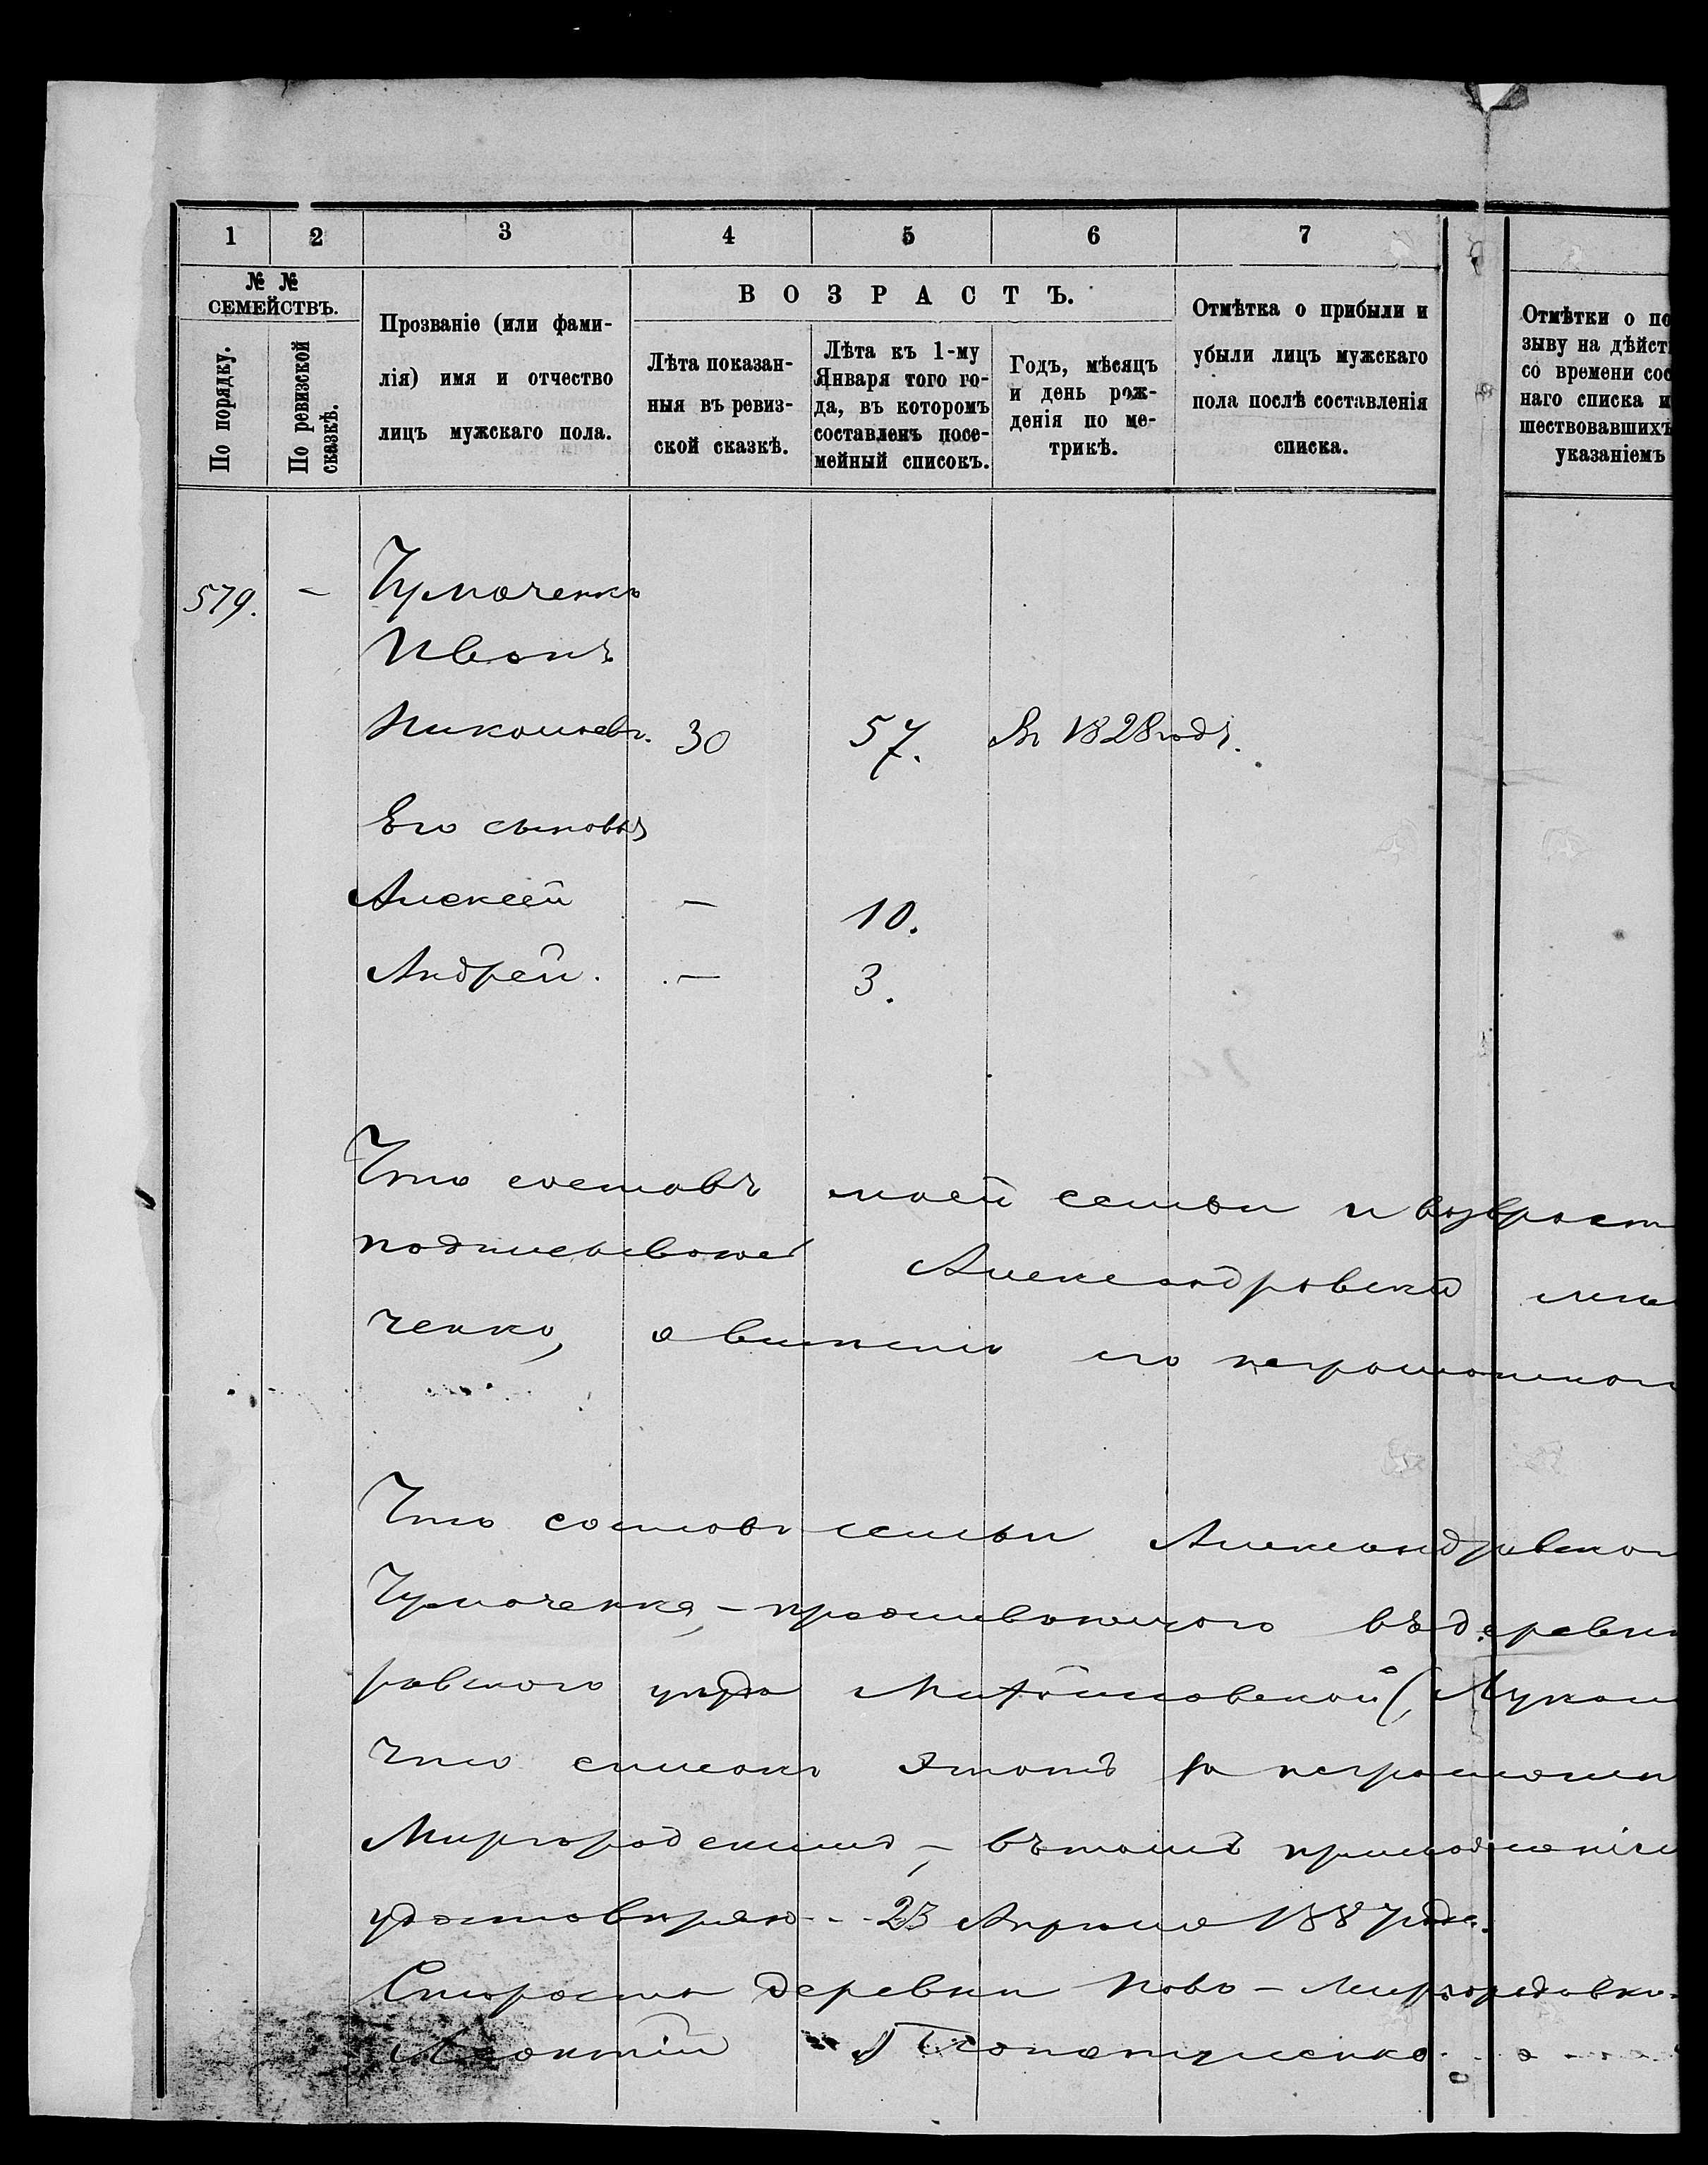 1 2 3 4 5 6 7
№ № СЕМЕЙСТВЪ.
По порядку.
По ревизской сказкѣ.
Прозваніе (или фами-
лія) имя и отчество
лицъ мужскаго пола.
ВОЗРАСТЪ.
Лѣта показан-
ныя въ ревиз-
ской сказкѣ.
Лѣта къ 1-му
Января того го-
да, въ которомъ
составленъ посе-
мейный списокъ.
Годъ, мѣсяцъ
и день рож-
денія по ме-
трикѣ.
Отмѣтка о прибыли и
убыли лицъ мужскаго
пола послѣ составленія
списка.
Отмѣтки о по
зыву на дѣйст
со времени сос
наго списка и
шествовавшихъ
указаніемъ
579. - Чумаченко
Иванъ
Николаевъ. 30 57. Въ 1828 годѣ.
Его сыновья
Алексѣй - 10.
Андрей. - 3.
Что составъ моей семьи и возраст
Александровскій
ченко, а вмѣсто его неграмотнаго
Что составъ семьи Александровскаго
Чумаченка, - проживающаго въ деревни
ровскаго уѣзда
что списокъ этотъ неграмотен
Миргородскимъ, - въ томъ приложеніем
удостовѣряю - 23 Апреля 1887 года.
Староста деревни Ново-Миргородовки
Леонтій